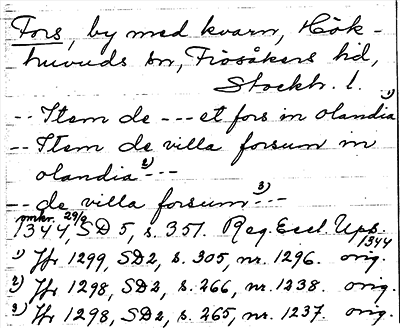 Fors, by med kvarn, Hök-
huvuds sn, Frösåkers hd,
Stockh. l.
-- Item de --- et fors in olandia 1)
-- Item de villa forsum in
olandia 2) ---
-- de villa forsum 3) ---
omkr. 29/2
1344, SD 5, s. 351. Reg. Eccl. Ups.
1344
1) Jfr 1299, SD2, s. 305, nr. 1296. orig.
2) Jfr 1298, SD2, s. 266, nr. 1238. orig.
3) Jfr 1298, SD2, s. 265, nr. 1237. orig.